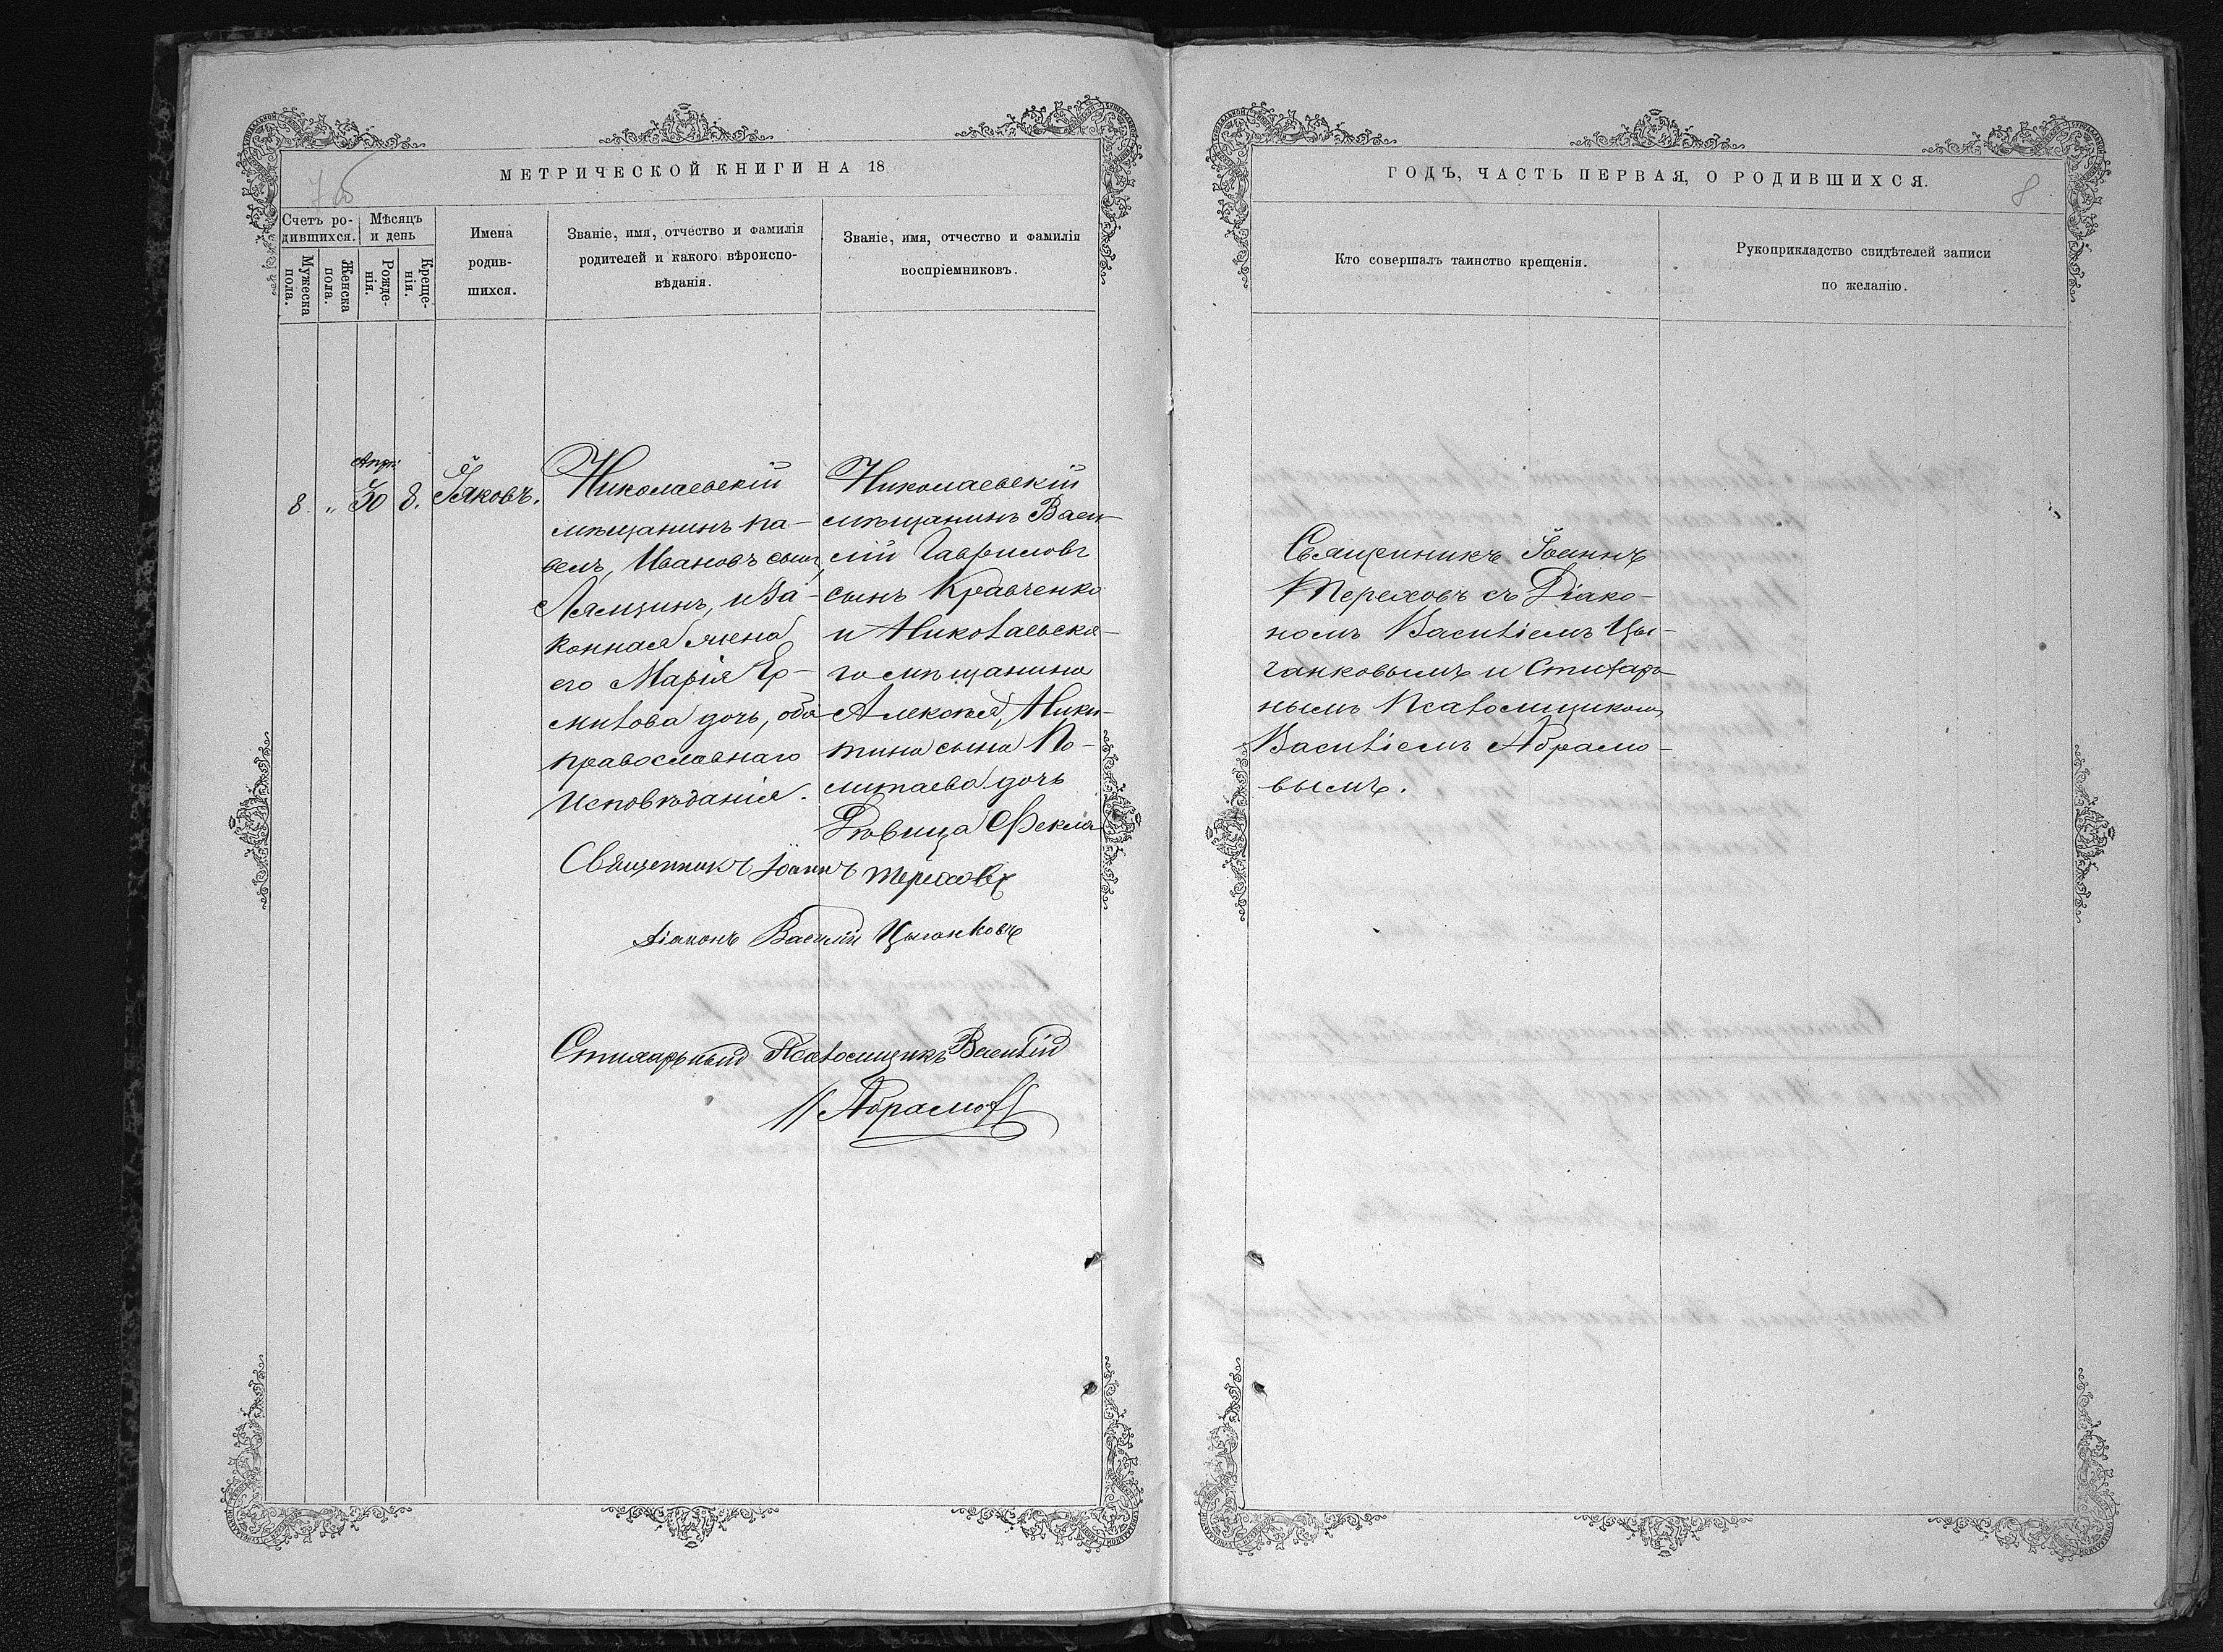 7 об
МЕТРИЧЕСКОЙ КНИГИ НА 18
Счетъ ро-
дившихся.
Мѣсяцъ
и день
Мужеска
пола.
Женска
пола.
Рожде-
нія.
Креще-
нія.
Имена
родив-
шихся.
Званіе, имя, отчество и фамилія
родителей и какого вѣроиспо-
вѣданія.
Званіе, имя, отчество и фамилія
воспріемниковъ.
Апр:
8. „ 30 8. Іяковъ.
Николаевскій
мѣщанинъ Па-
велъ, Ивановъ сынъ,
Лямцинъ, и За-
конная жена
его Марія Ер-
милова дочь, оба
православнаго
Исповѣданія.
Николаевскій
мѣщанинъ Васи-
лій Гавриловъ
сынъ Кравченко
и Николаевска-
го мѣщанина
Алексѣя, Ники-
тина сына По-
митаева дочь
Дѣвица Фекла
Священникъ Іоаннъ Тереховъ
діаконъ Василій Цыганковъ
Стихарный Псаломщикъ Василій
Абрамовъ
ГОДЪ, ЧАСТЬ ПЕРВАЯ, О РОДИВШИХСЯ.
8
Кто совершалъ таинство крещенія.
Рукоприкладство свидѣтелей записи
по желанію.
Священикъ Іоаннъ
Тереховъ съ Діако-
номъ Василіемъ Цы-
ганковымъ и Стихар-
нымъ Псаломщикомъ
Василіемъ Абрамо-
вымъ.